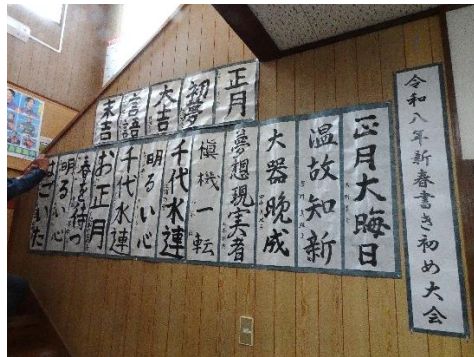 令和八年新春書き初め大会
正月
初夢
大吉
言語
末吉
正月大晦日
温故知新
大器晩成
夢想現実者
慎機一転
千代水連
明るい心
千代水連
お正月
春を待つ
明るい心
はごいた